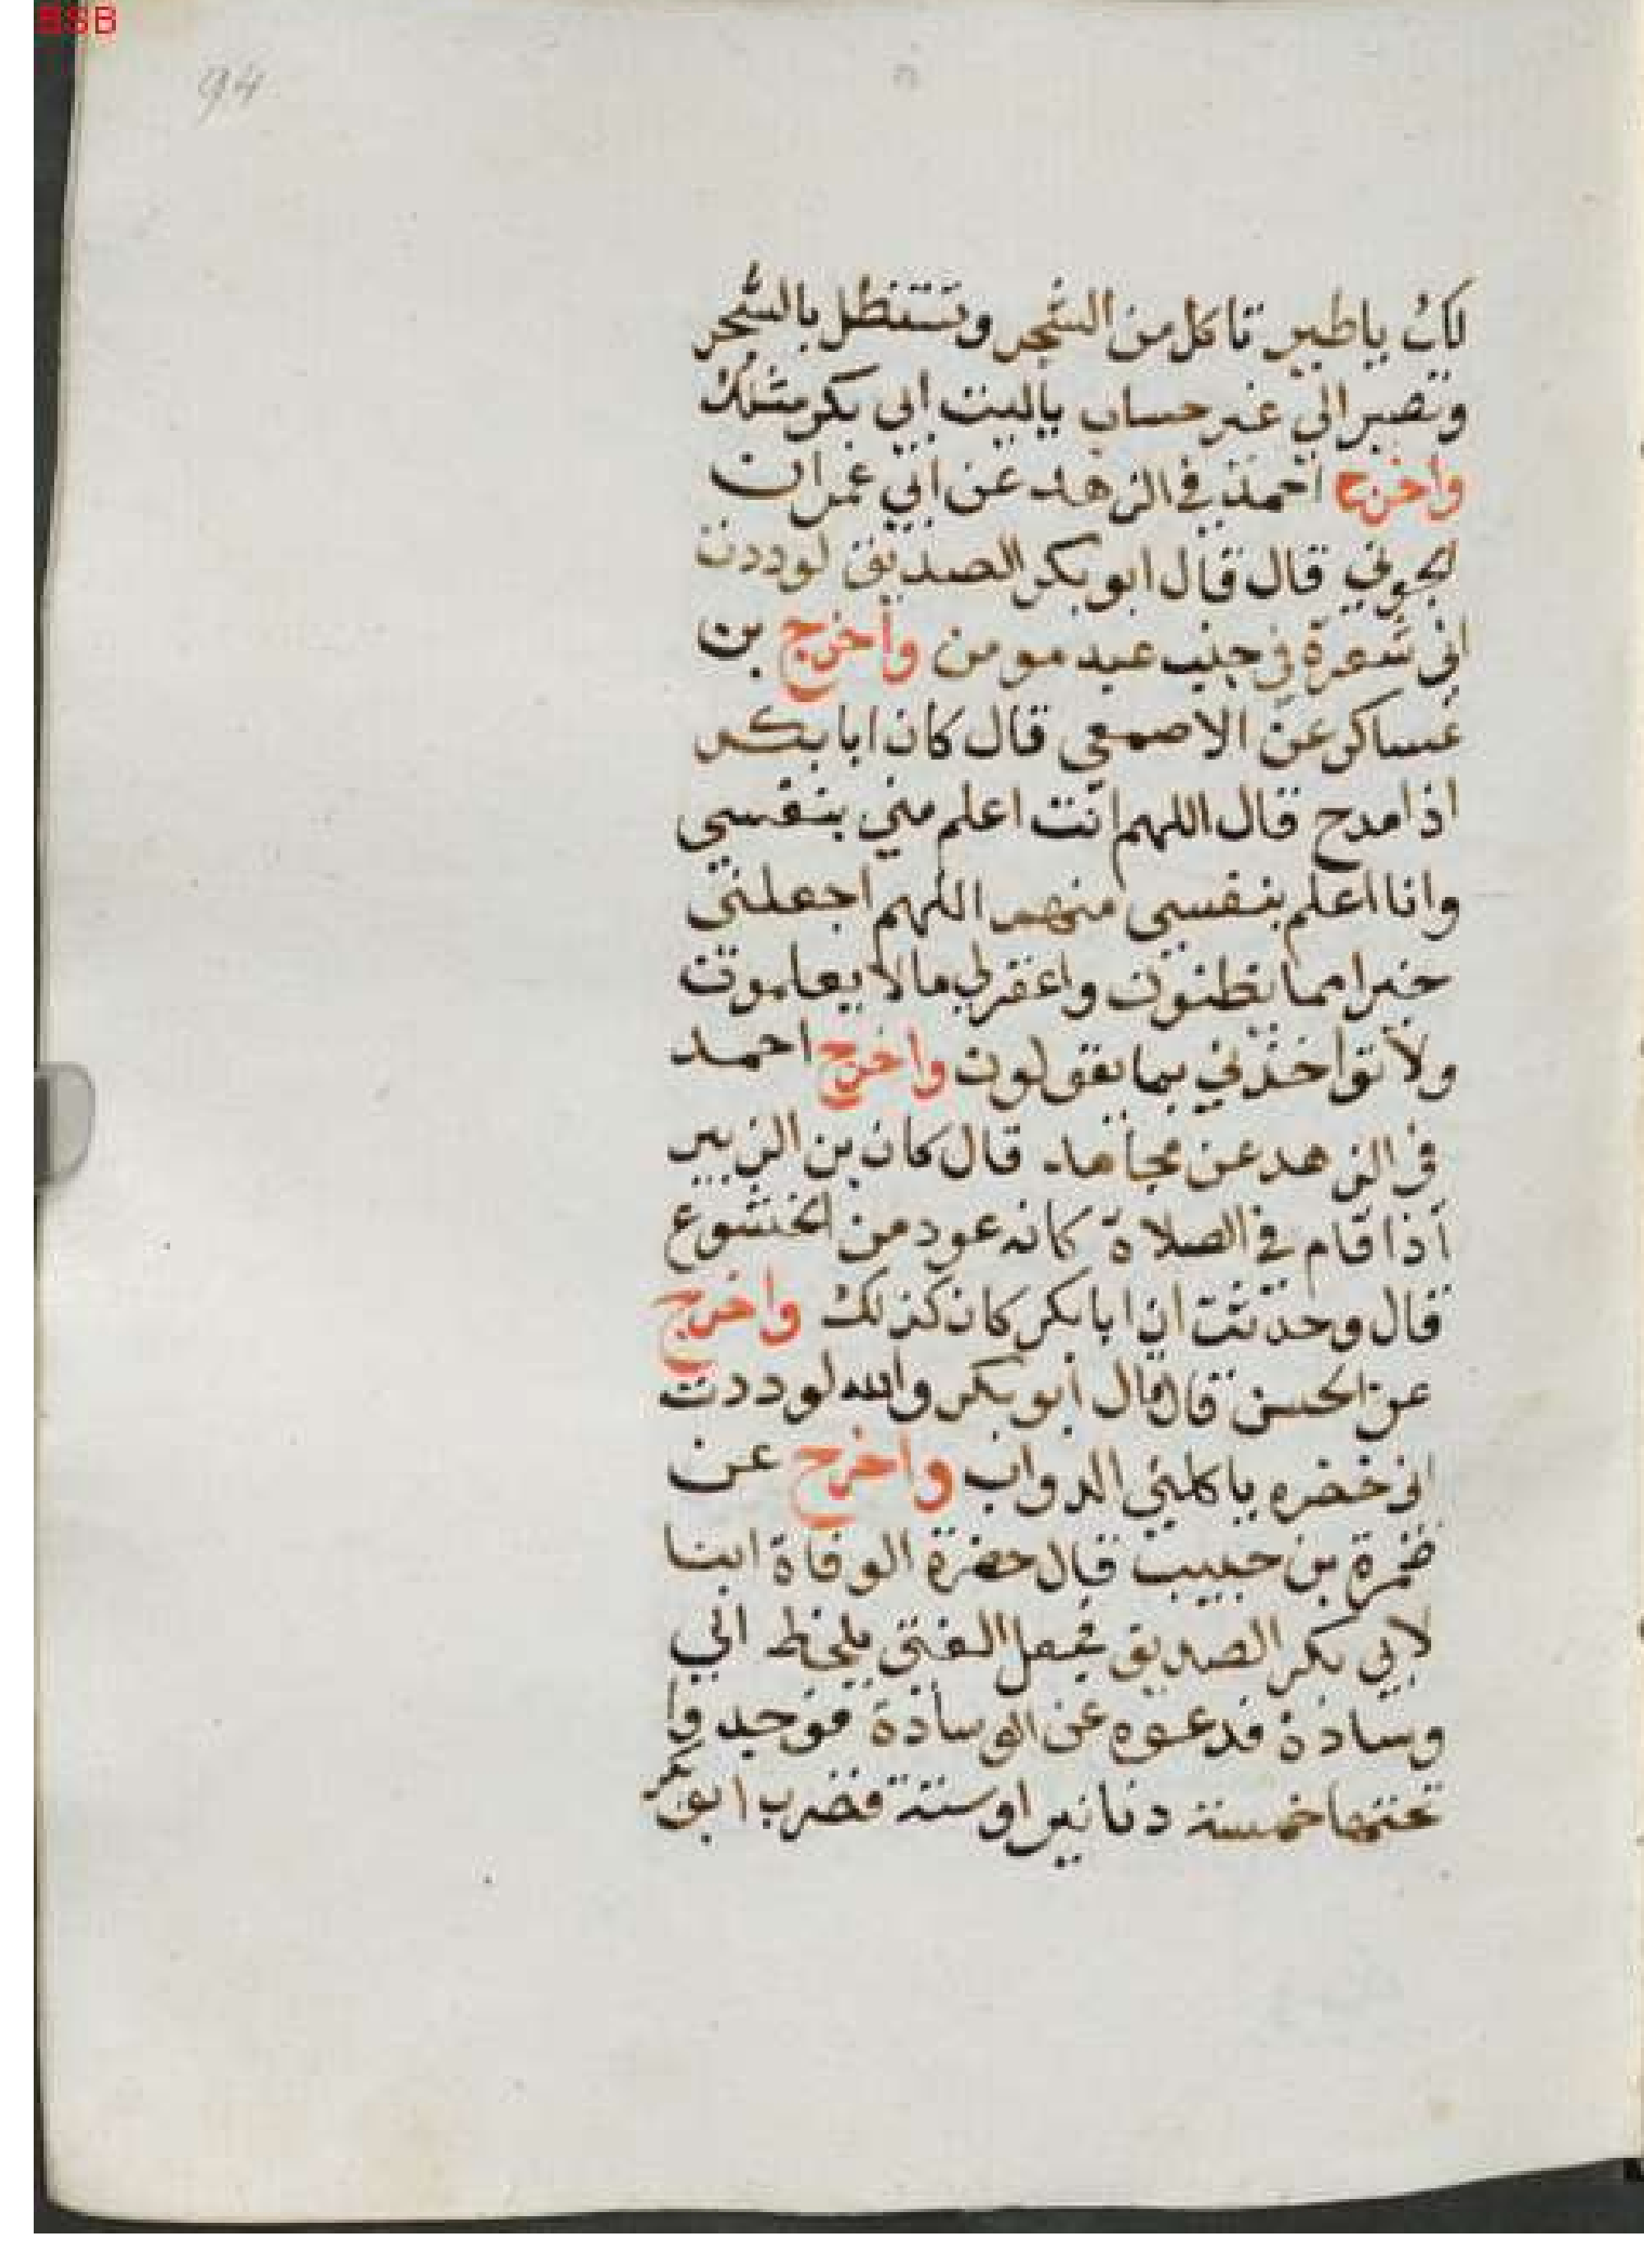 BSB
94
لك ياطير تاكل من الشجر وتستظل بالشجر
وتصير الي غير حساب ياليت ابي بكر مثلك
واخرج احمد في الزهد عن ابي عمران
الجوني قال قال ابو بكر الصديق لوددت
اني شعرة في جنب عبد مومن وأخرج بن
عساكر عن الاصمعي قال كان ابا بكر
اذا مدح قال اللهم انت اعلم مني بنفسي
وانا اعلم بنفسي منهم اللهم اجعلني
خيرا مما يظنون واغفرلي مالا يعلمون
ولا تواخذني بما يقولون واخرج احمد
في الزهد عن مجاهد قال كان بن الزبير
اذا قام في الصلاة كانه عود من الخشوع
قال وحدثت ان ابا بكر كان كذلك واخرج
عن الحسن قال قال أبو بكر والله لوددت
اني خضره ياكلني الدواب واخرج عن
ضمرة بن حبيب قال حضرة الوفاة ابنا
لابي بكر الصديق فجعل الفتى يلحظ الي
وسادة فدعوه عن الوسادة فوجدوا
تحتها خمسة دنانير او ستة فضرب ابو بكر